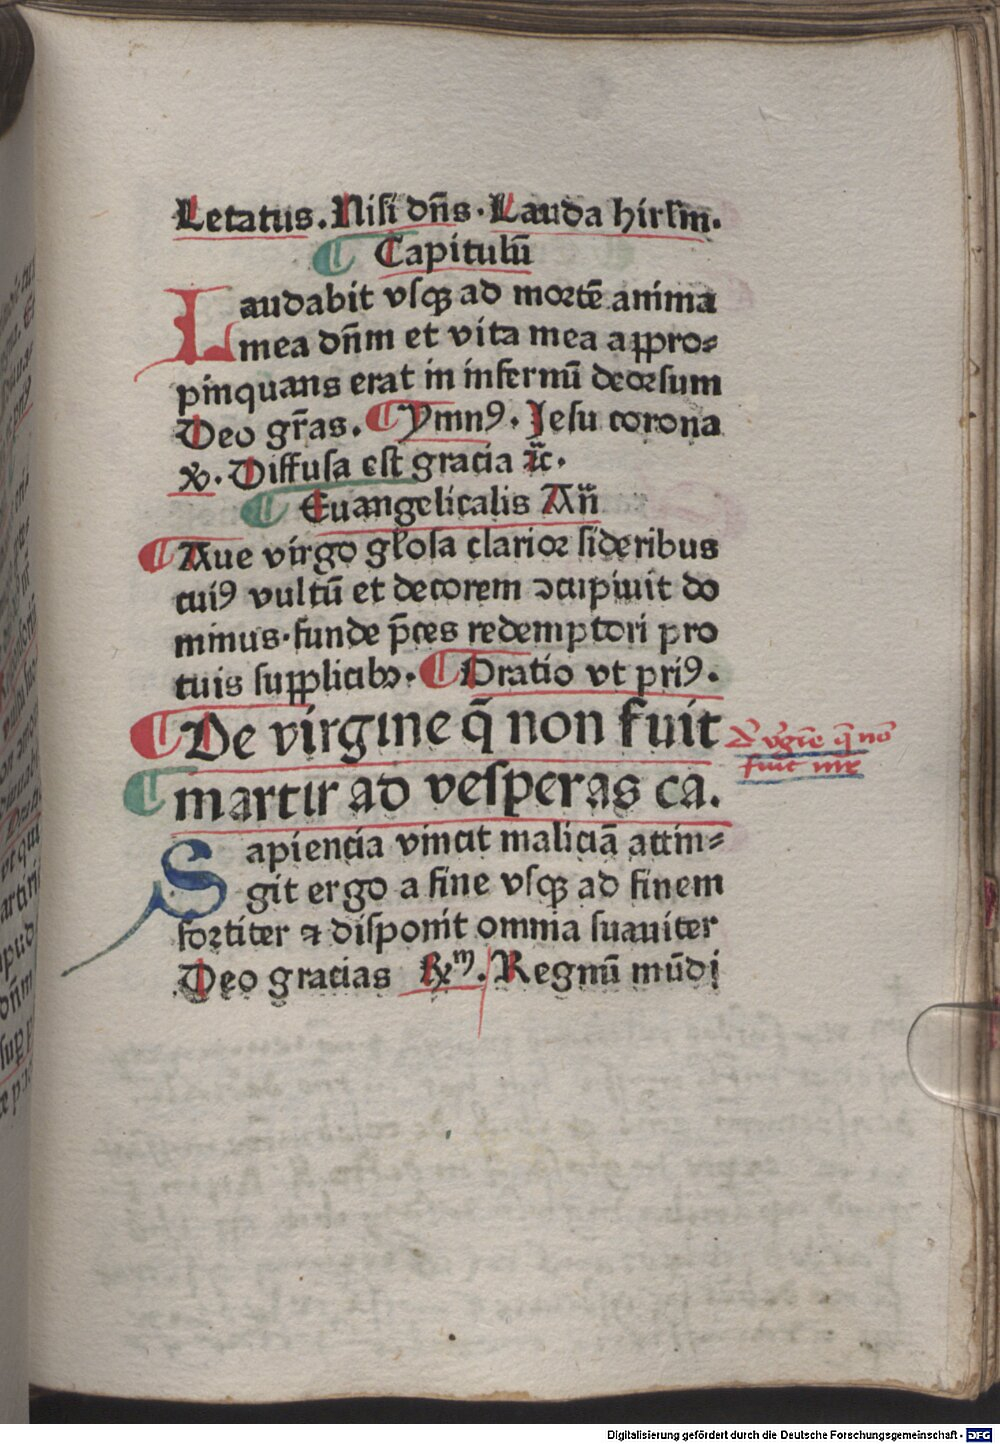 Letatus. Nisi dn̄s. Lauda hirl̄m.
Capitulū
Laudabit vsqꝫ ad mortē anima
mea dn̄m et vita mea appro⸗
pinquans erat in infernū deorsum
Deo gr̄as. Ymnꝰ. Jesu corona
Diffusa est gracia ꝛc̄.
Euangelicalis An̄
Aue virgo gl'osa clarior sideribus
cuiꝰ vultū et decorem ꝯcupiuit do
minus. funde p̄ces redemptori pro
tuis supplicibꝫ. Oratio vt priꝰ.
De virgine q̄ non fuit
martir ad vesperas ca.
Sapiencia vincit maliciā attin⸗
git ergo a fine vsqꝫ ad finem
fortiter ⁊ disponit omnia suauiter
Deo gracias ℞m. Regnū mūdi
d' v'gīe q̄ nō
fuit mr
Digitalisierung gefördert durch die Deutsche Forschungsgemeinschaft - DFG